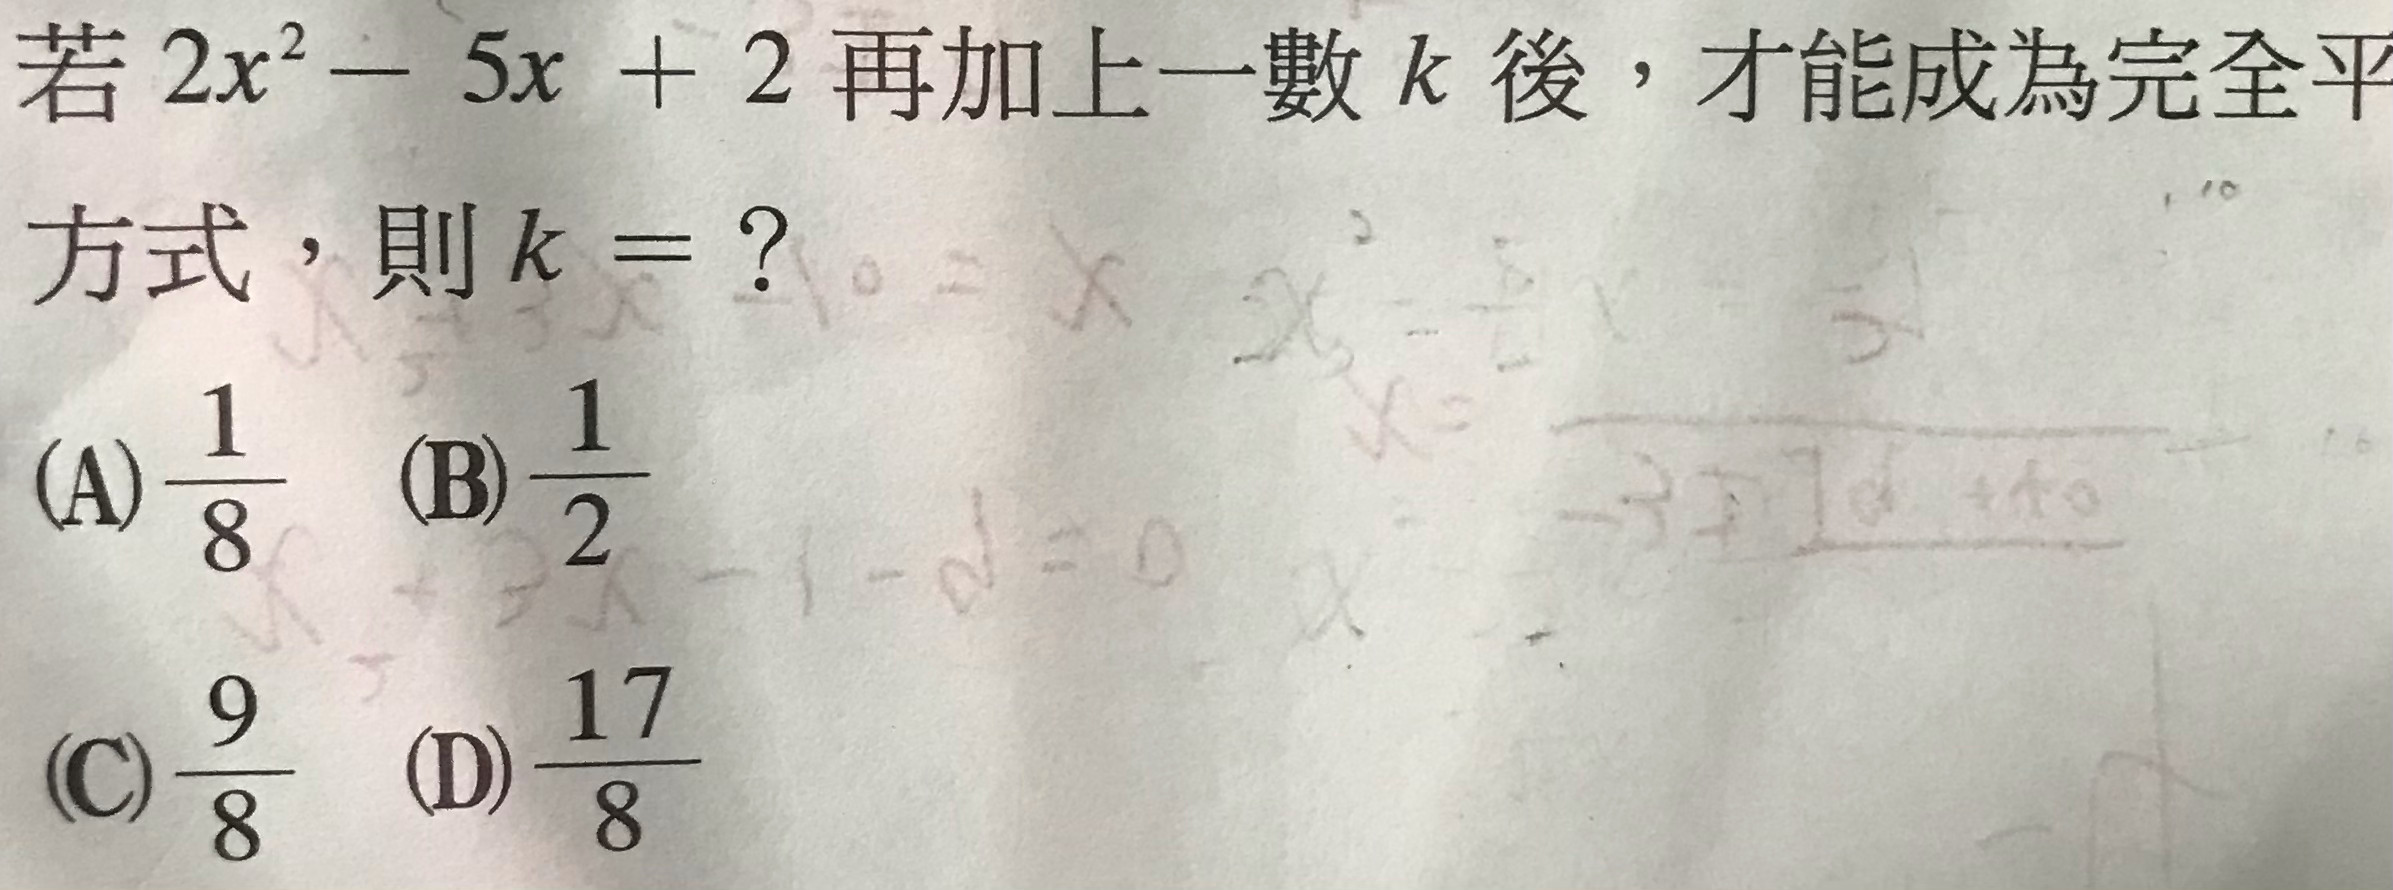 若 2x² − 5x + 2 再加上一數 k 後，才能成為完全平
方式，則 k = ？
(A) 1/8 (B) 1/2
(C) 9/8 (D) 17/8